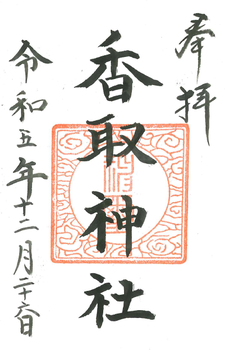 奉拝
香取神社
令和五年十二月二十六日